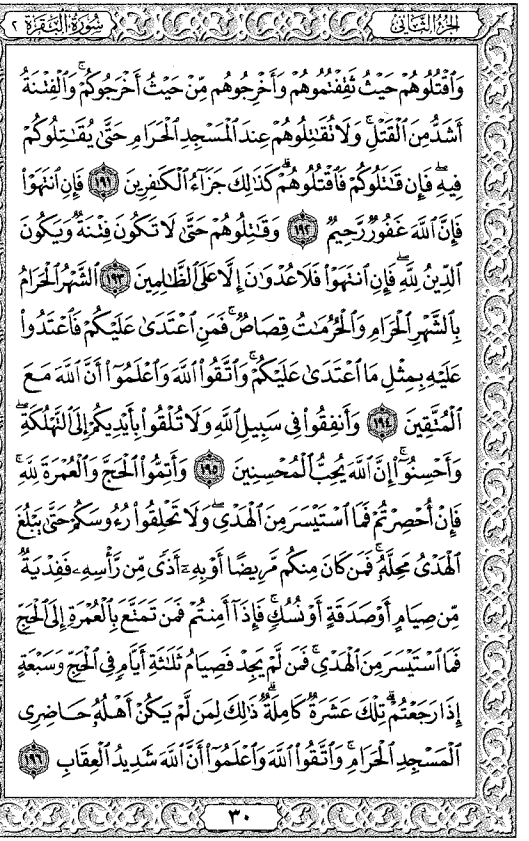 الجزء الثاني
سورة البقرة ٢
وَٱقْتُلُوهُمْ حَيْثُ ثَقِفْتُمُوهُمْ وَأَخْرِجُوهُم مِّنْ حَيْثُ أَخْرَجُوكُمْ ۚ وَٱلْفِتْنَةُ
أَشَدُّ مِنَ ٱلْقَتْلِ ۚ وَلَا تُقَٰتِلُوهُمْ عِندَ ٱلْمَسْجِدِ ٱلْحَرَامِ حَتَّىٰ يُقَٰتِلُوكُمْ
فِيهِ ۖ فَإِن قَٰتَلُوكُمْ فَٱقْتُلُوهُمْ ۗ كَذَٰلِكَ جَزَآءُ ٱلْكَٰفِرِينَ ١٩١ فَإِنِ ٱنتَهَوْا۟
فَإِنَّ ٱللَّهَ غَفُورٌ رَّحِيمٌ ١٩٢ وَقَٰتِلُوهُمْ حَتَّىٰ لَا تَكُونَ فِتْنَةٌ وَيَكُونَ
ٱلدِّينُ لِلَّهِ ۖ فَإِنِ ٱنتَهَوْا۟ فَلَا عُدْوَٰنَ إِلَّا عَلَى ٱلظَّٰلِمِينَ ١٩٣ ٱلشَّهْرُ ٱلْحَرَامُ
بِٱلشَّهْرِ ٱلْحَرَامِ وَٱلْحُرُمَٰتُ قِصَاصٌ ۚ فَمَنِ ٱعْتَدَىٰ عَلَيْكُمْ فَٱعْتَدُوا۟
عَلَيْهِ بِمِثْلِ مَا ٱعْتَدَىٰ عَلَيْكُمْ ۚ وَٱتَّقُوا۟ ٱللَّهَ وَٱعْلَمُوٓا۟ أَنَّ ٱللَّهَ مَعَ
ٱلْمُتَّقِينَ ١٩٤ وَأَنفِقُوا۟ فِى سَبِيلِ ٱللَّهِ وَلَا تُلْقُوا۟ بِأَيْدِيكُمْ إِلَى ٱلتَّهْلُكَةِ ۛ
وَأَحْسِنُوٓا۟ ۛ إِنَّ ٱللَّهَ يُحِبُّ ٱلْمُحْسِنِينَ ١٩٥ وَأَتِمُّوا۟ ٱلْحَجَّ وَٱلْعُمْرَةَ لِلَّهِ ۚ
فَإِنْ أُحْصِرْتُمْ فَمَا ٱسْتَيْسَرَ مِنَ ٱلْهَدْىِ ۖ وَلَا تَحْلِقُوا۟ رُءُوسَكُمْ حَتَّىٰ يَبْلُغَ
ٱلْهَدْىُ مَحِلَّهُۥ ۚ فَمَن كَانَ مِنكُم مَّرِيضًا أَوْ بِهِۦٓ أَذًى مِّن رَّأْسِهِۦ فَفِدْيَةٌ
مِّن صِيَامٍ أَوْ صَدَقَةٍ أَوْ نُسُكٍ ۚ فَإِذَآ أَمِنتُمْ فَمَن تَمَتَّعَ بِٱلْعُمْرَةِ إِلَى ٱلْحَجِّ
فَمَا ٱسْتَيْسَرَ مِنَ ٱلْهَدْىِ ۚ فَمَن لَّمْ يَجِدْ فَصِيَامُ ثَلَٰثَةِ أَيَّامٍ فِى ٱلْحَجِّ وَسَبْعَةٍ
إِذَا رَجَعْتُمْ ۗ تِلْكَ عَشَرَةٌ كَامِلَةٌ ۗ ذَٰلِكَ لِمَن لَّمْ يَكُنْ أَهْلُهُۥ حَاضِرِى
ٱلْمَسْجِدِ ٱلْحَرَامِ ۚ وَٱتَّقُوا۟ ٱللَّهَ وَٱعْلَمُوٓا۟ أَنَّ ٱللَّهَ شَدِيدُ ٱلْعِقَابِ ١٩٦
٣٠